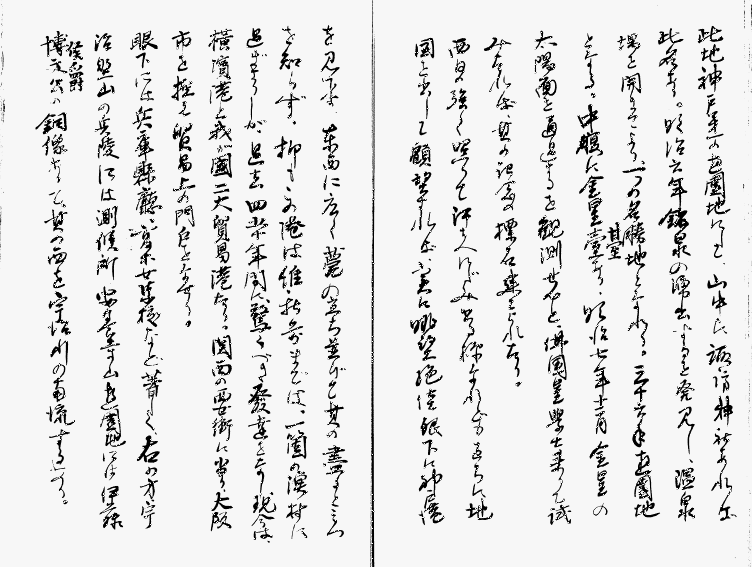 此地神戸第一の遊園地にて山中に諏訪神社あれば
此名あり。明治六年鉱泉の湧出するを発見し、温泉
場を開きてより一つの名勝地となれり。三十六年遊園地
となる。中腹に金星臺あり、明治七年十二月金星の
太陽面を通過するを観測せむと、佛国星学士来りて試
みたれば、其の記念の標石建られたり。
西日強く照りて
国を出して顧望すれば、実に眺望絶佳眼下に神戸港
を見下し東西に広く甍の立ち並びと其の盡すところ
を知らず。抑もこの港は維新前までは、一箇の漁村に
過ぎざりしが、過去四十年間に驚くべき發達をなし現今は、
横濱港と我が國二大貿易港たり。関西の要衝に当り大阪
市を控え貿易上の門戸となせり。
眼下には兵庫縣廳、高等女学校など著しく、右の方宇
治野山の兵陵には測候所安養寺山遊園地には伊藤
侯爵
博文公の銅像ありて、其の西を宇治川の南流するあり。